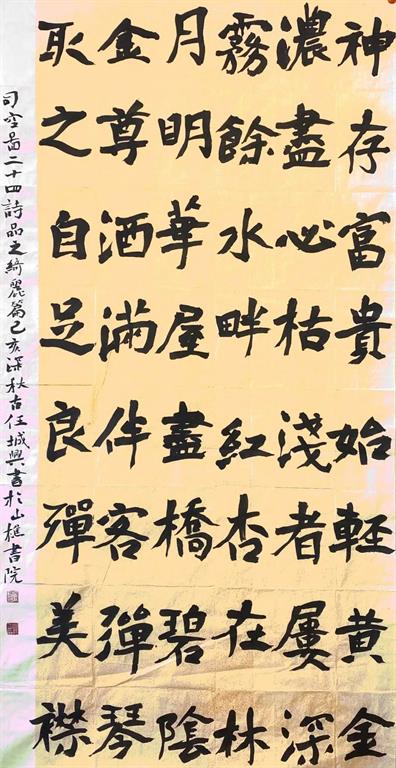 神存富貴始輕黄金
濃盡必枯淺者屢深
霧餘水畔紅杏在林
月明華屋畫橋碧陰
金尊酒滿伴客彈琴
取之自足良殫美襟
司空啚二十四詩品之綺麗篇己亥深秋古任城興書於山樵書院